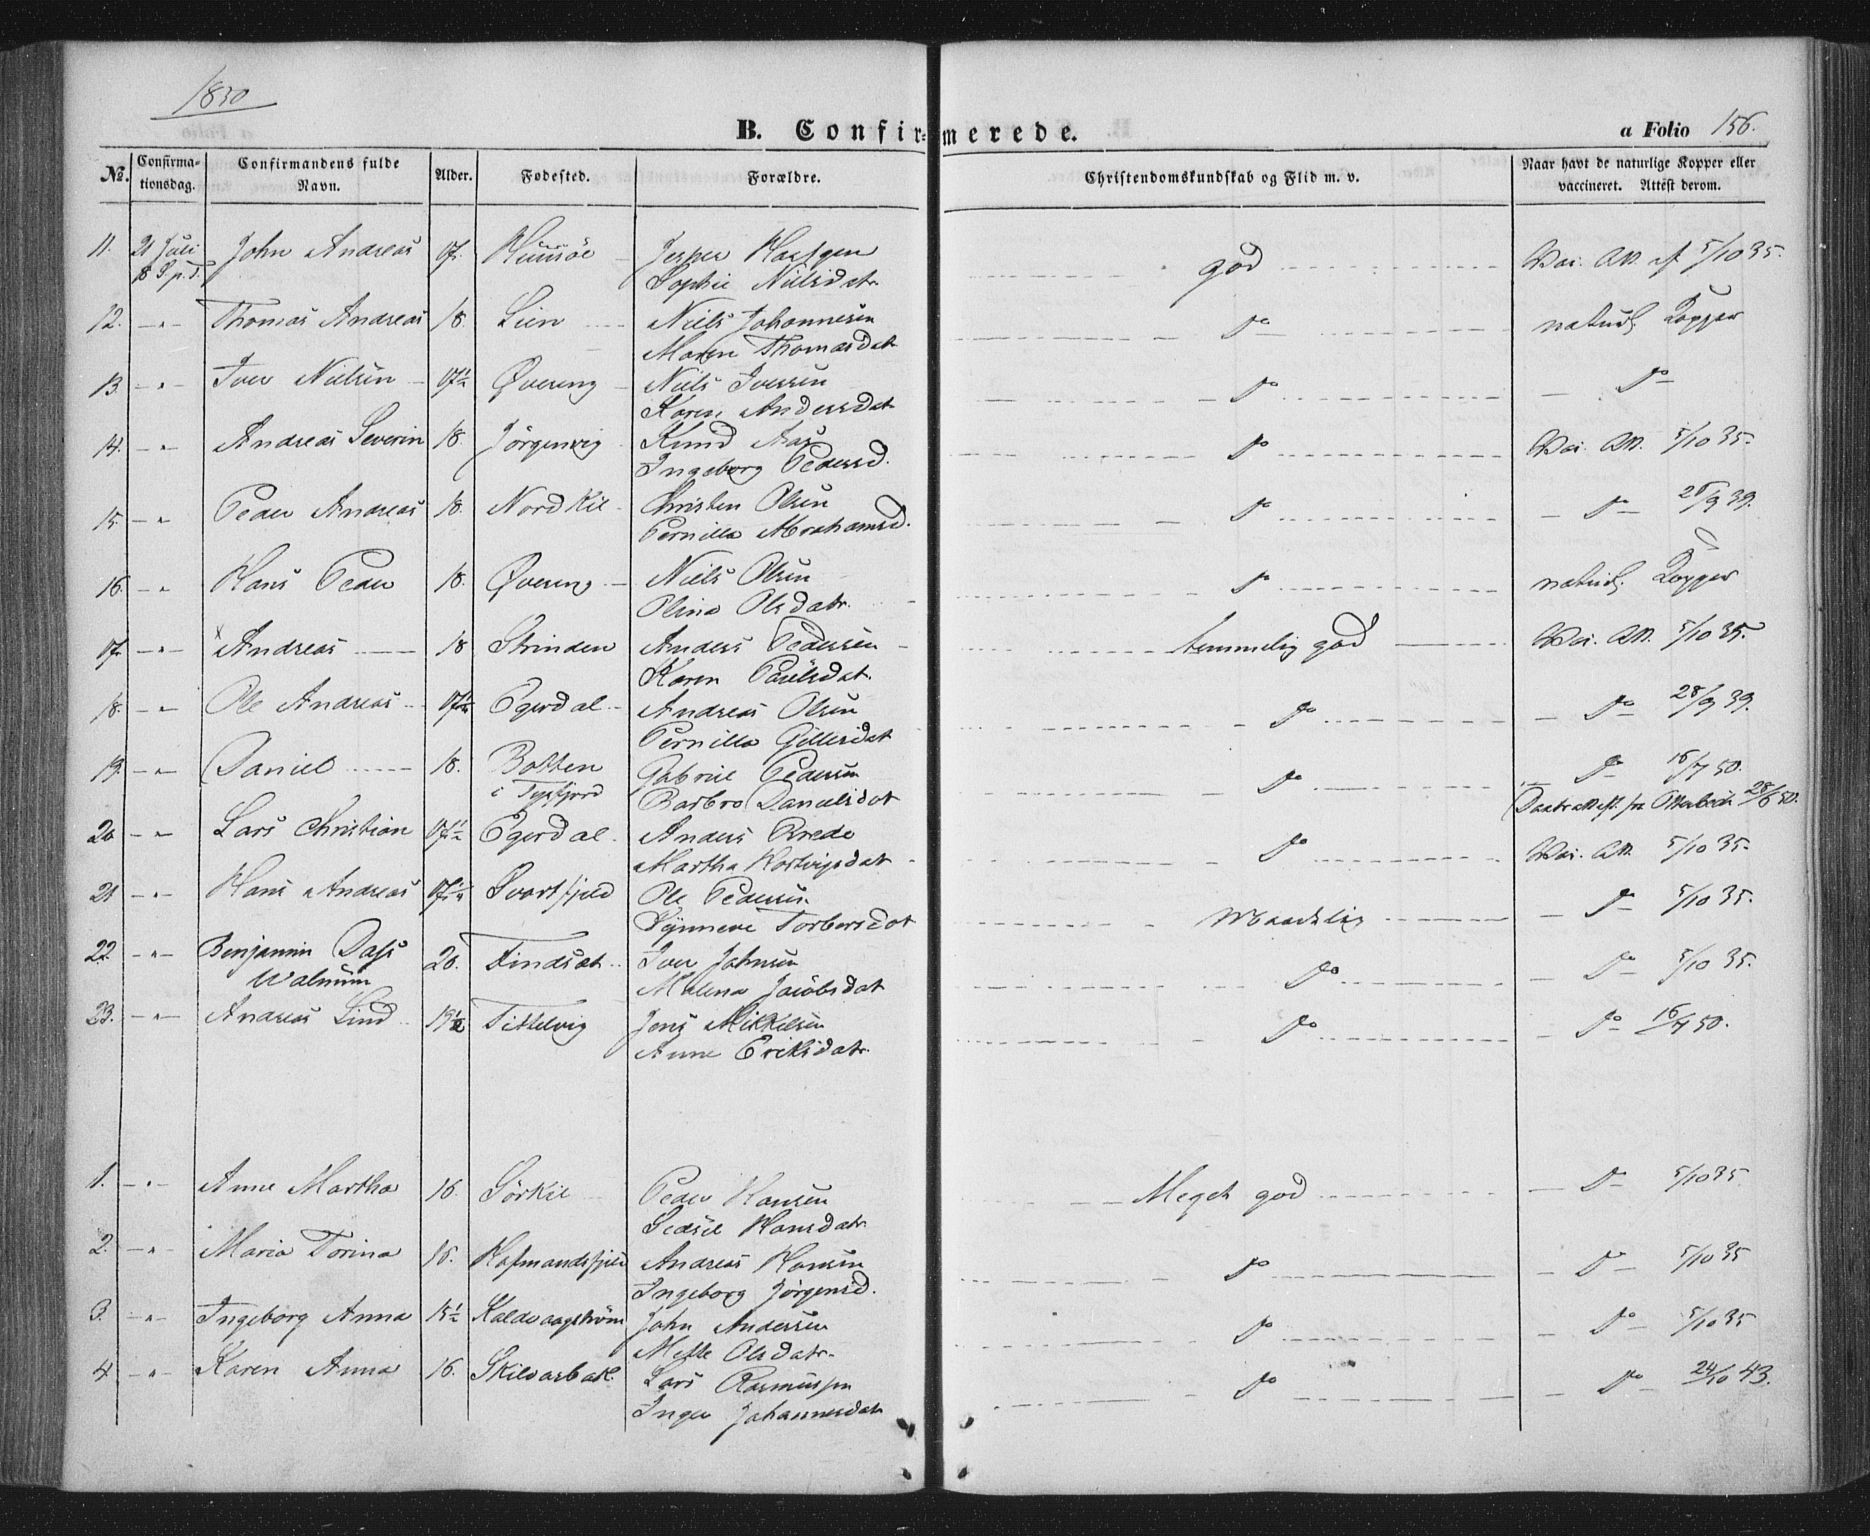 1850
B. Confirmerede.
a Folio 156.
No.
Confirmationsdag.
Confirmandens fulde Navn.
Alder.
Fødested.
Forældre.
Christendomskundskab og Flid m. v.
Naar havt de naturlige Kopper eller vaccineret. Attest derom.
11. 21 Juli John Andreas 17. Huusöe Jesper Hartgen god Vac. Att. af 5/10 35.
8 S. p. T. Sophie Nilsdatr
12. -"- Thomas Andreas 18. Lien Niels Johannesen do naturl. Kopper
Maren Thomasdat
13. -"- Iver Nielsen 17½ Øvereng Niels Iversen do do
Karen Andersdat
14. -"- Andreas Severin 18. Jörgenvig Knud Aas do Vac. Att. 5/10 35.
Ingeborg Pedersd.
15. -"- Peder Andreas 18. Nordkil Christen Olsen do do 28/9 39.
Pernilla Abrahamsd.
16. -"- Hans Peder 18. Øvereng Niels Olsen do naturl. Kopper
Olina Olsdatr.
17. -"- Andreas 18 Strinden Anders Pedersen temmelig god Vac. Att. 5/10 35.
Karen Paulsdat.
18. -"- Ole Andreas 17½ Egerdal Andreas Olsen do do 28/9 39.
Pernilla Gillesdat
19. -"- Daniel 18. Botten Gabriel Pedersen do do 16/7 50.
i Tysfjord Barbro Danielsdat Daabsattest fra 28/6 50.
20 -"- Lars Christian 17½ Egerdal Anders Brede do Vac. Att. 5/10 35.
Martha Hartvigsdat
21 -"- Hans Andreas 17½ Svartfjeld Ole Pedersen maadelig do 5/10 35.
Synneve Torbersdat
22. -"- Benjamin Dass 20. Findsæt Iver Johnsen do do 5/10 35.
Walnum Malena Jacobsdat
23. -"- Andreas Lind 19½ Tittelvig Jens Mikkelsen do do 16/7 50.
Anne Eriksdatr.
1. -"- Anne Martha 16. Sörkil Peder Hansen Meget god do 5/10 35
Sedsel Hansdatr
2. -"- Maria Torina 16. Hafmandsfjeld Andreas Hansen do do 5/10 35
Ingeborg Jörgensd.
3. -"- Ingeborg Anna 15½ Kaldvaagström John Andersen do do 5/10 35
Mette Olsdatr.
4 -"- Karen Anna 16. Skilvasbak. Lars Rasmussen do do 24/10 43.
Inger Johannesdatr